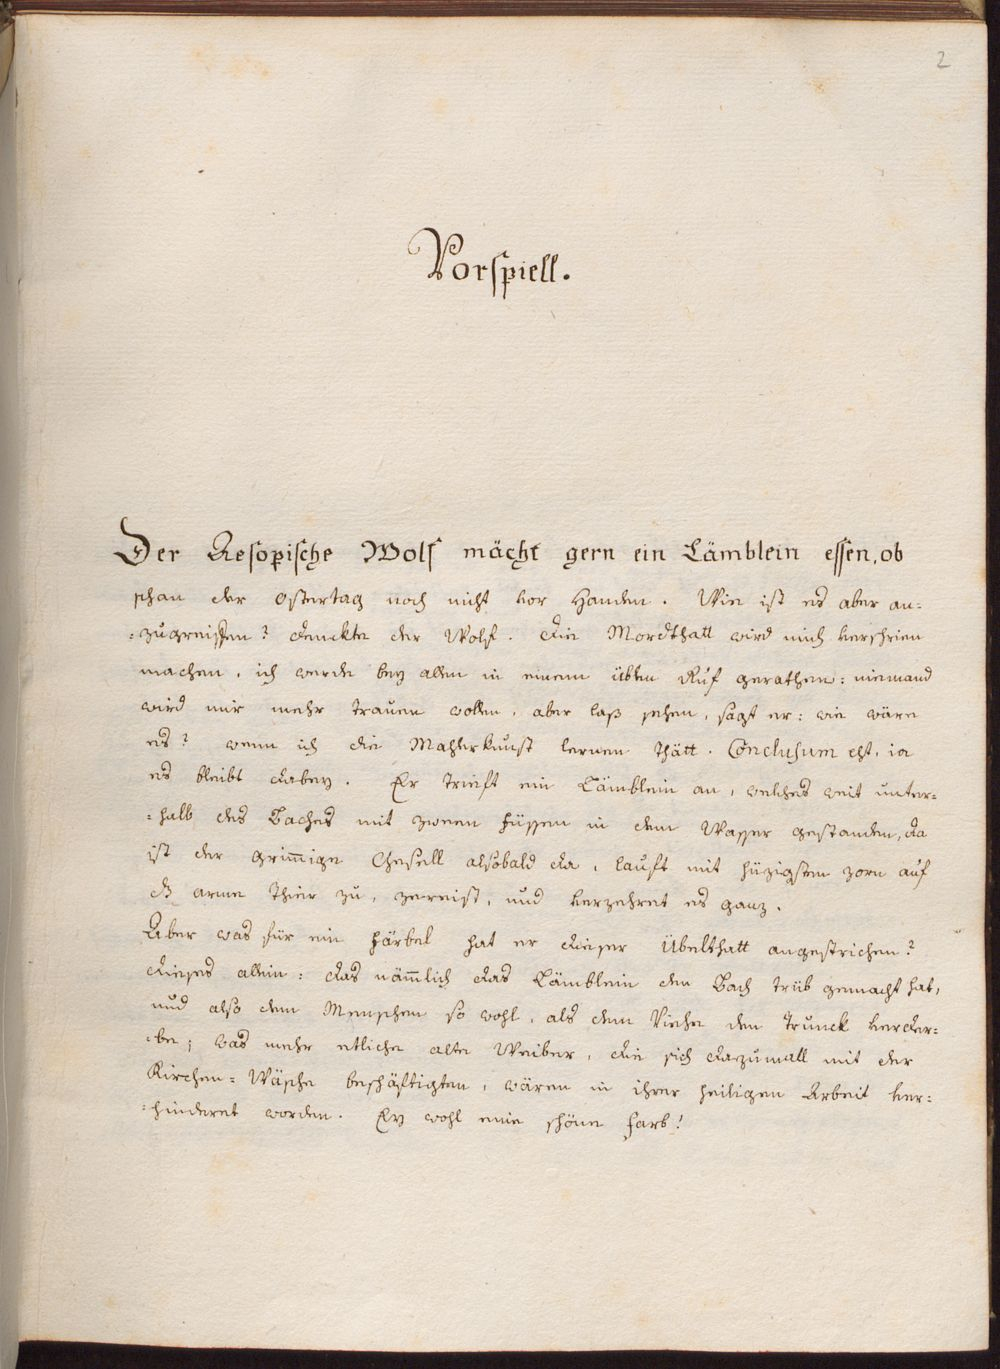 2
Vorspiell.
Der Aesopische Wolf mächt gern ein Lämblein essen, ob
schon der Ostertag noch nicht vor Handen. Wie ist es aber an=
=zugreiffen? denckte der Wolf. die Mordthatt wird mich verschrien
machen, ich werde bey allen in einem üblen Ruf gerathen: niemand
wird mir mehr trauen wollen, aber laß sehen, sagt er: wie wäre
es? wenn ich die Mahlerkunst lernen thätt. Conclusum est, ia
es bleibt darbey. Er trieft ein Lämblein an, welches weit unter=
=halb des Baches mit zween füssen in dem Wasser gestanden, da
ist der grim̄ige Gesell alsobald da, lauft mit hüzigstem zorn auf
dz arme Thier zu, zerreist, und verzehret es ganz.
Aber was für ein färbel hat er dieser Übelthatt angestrichen?
dieses allein: das näm̄lich das Lämblein den Bach trüb gemacht hat,
und also dem Menschen so wohl, als dem Viehe den Trunck verder=
=be; was mehr etliche alte Weiber, die sich dazumall mit der
Kirchen=Wäsche beschäftigten, wären in ihrer heiligen Arbeit ver=
=hinderet worden. Ey wohl eine schöne farb!